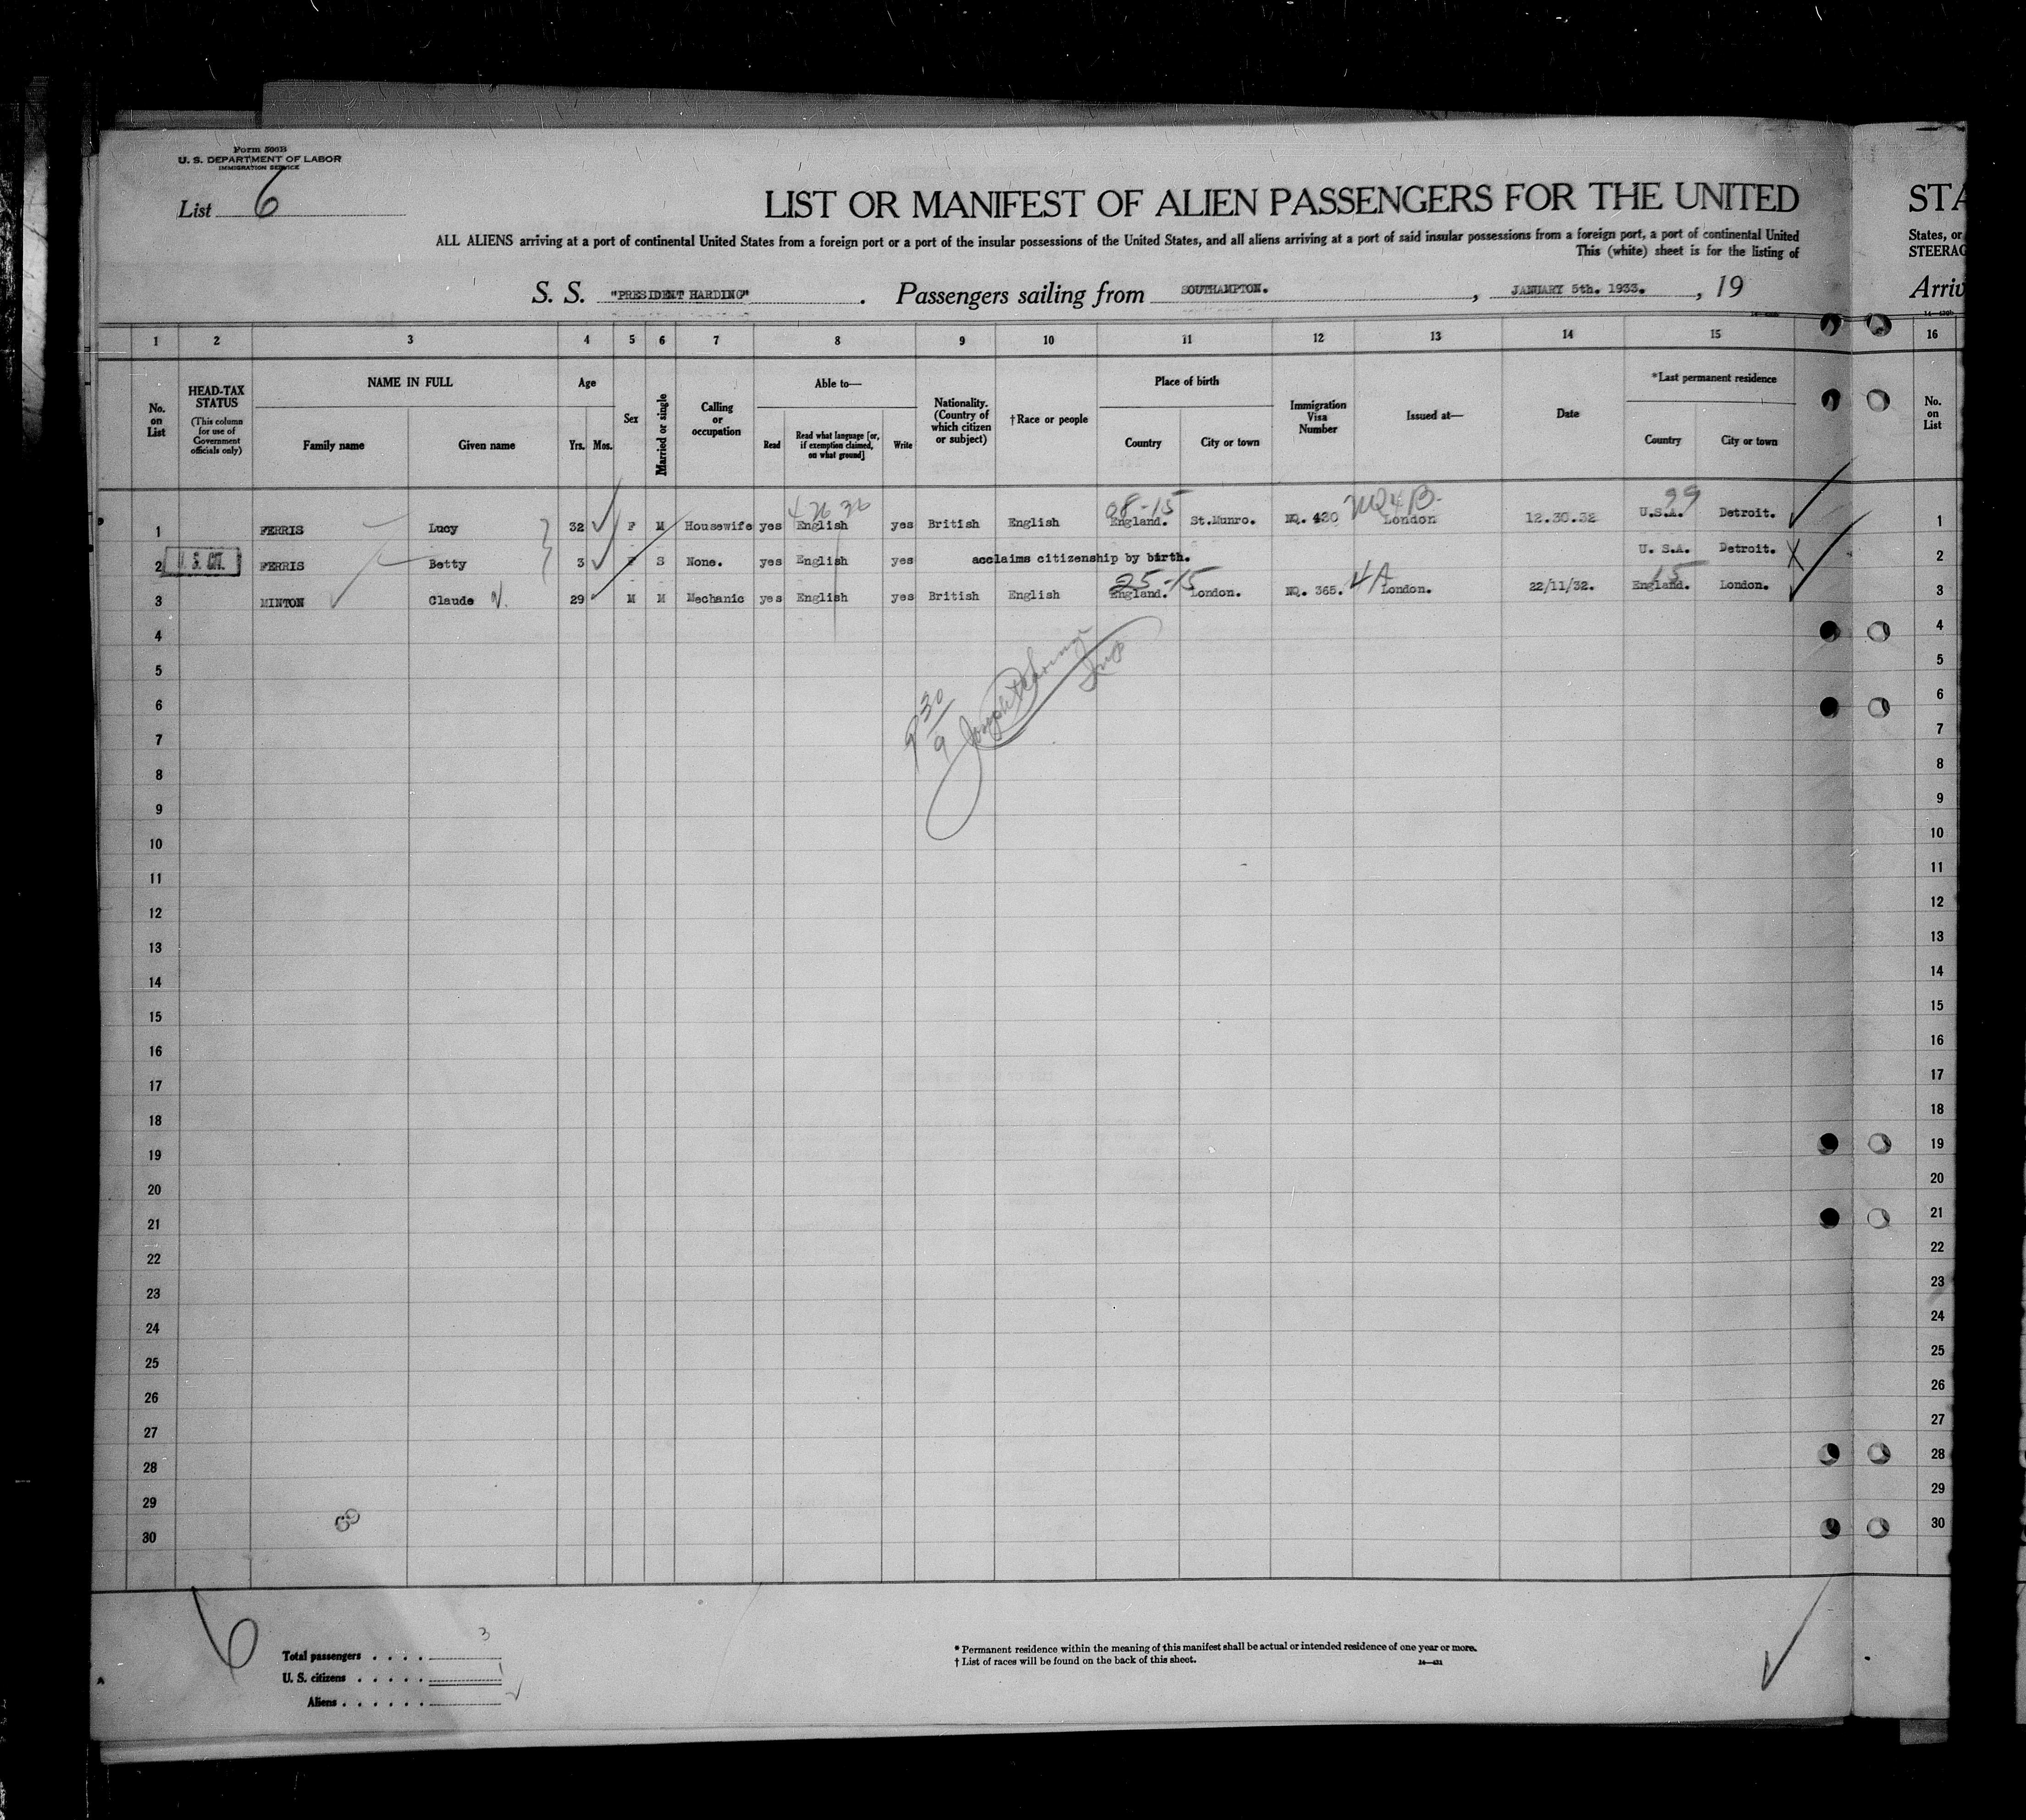 Form 500B
U. S. DEPARTMENT OF LABOR
IMMIGRATION SERVICE
List 6
LIST OR MANIFEST OF ALIEN PASSENGERS FOR THE UNITED
STA
ALL ALIENS arriving at a port of continental United States from a foreign port or a port of the insular possessions of the United States, and all aliens arriving at a port of said insular possessions from a foreign port, a port of continental United
States, or
This (white) sheet is for the listing of
STEERAG
S. S. "PRESIDENT HARDING" . Passengers sailing from SOUTHAMPTON. , JANUARY 5th. 1933. , 19
Arriv
1 2 3 4 5 6 7 8 9 10 11 12 13 14 15 16
No. on List
HEAD-TAX STATUS (This column for use of Government officials only)
NAME IN FULL
Family name Given name
Age
Yrs. Mos.
Sex
Married or single
Calling or occupation
Able to—
Read Read what language [or, if exemption claimed, on what ground] Write
Nationality. (Country of which citizen or subject)
†Race or people
Place of birth
Country City or town
Immigration Visa Number
Issued at—
Date
*Last permanent residence
Country City or town
No. on List
08-15 NQ4B- 99
1 FERRIS Lucy 32 F M Housewife yes English yes British English England. St.Munro. NO. 430 London 12.30.32 U.S.A. Detroit. 1
2 U. S. CIT. FERRIS Betty 3 F S None. yes English yes acclaims citizenship by birth. U. S.A. Detroit. X 2
25-15 4A 15
3 MINTON Claude N. 29 M M Mechanic yes English yes British English England. London. NO. 365. London. 22/11/32. England. London. 3
4 4
5 5
6 6
7 7
8 8
9 9
10 10
11 11
12 12
13 13
14 14
15 15
16 16
17 17
18 18
19 19
20 20
21 21
22 22
23 23
24 24
25 25
26 26
27 27
28 28
29 29
30 30
6
Total passengers . . . . 3
U. S. citizens . . . . . 1
Aliens . . . . . .
* Permanent residence within the meaning of this manifest shall be actual or intended residence of one year or more.
† List of races will be found on the back of this sheet.